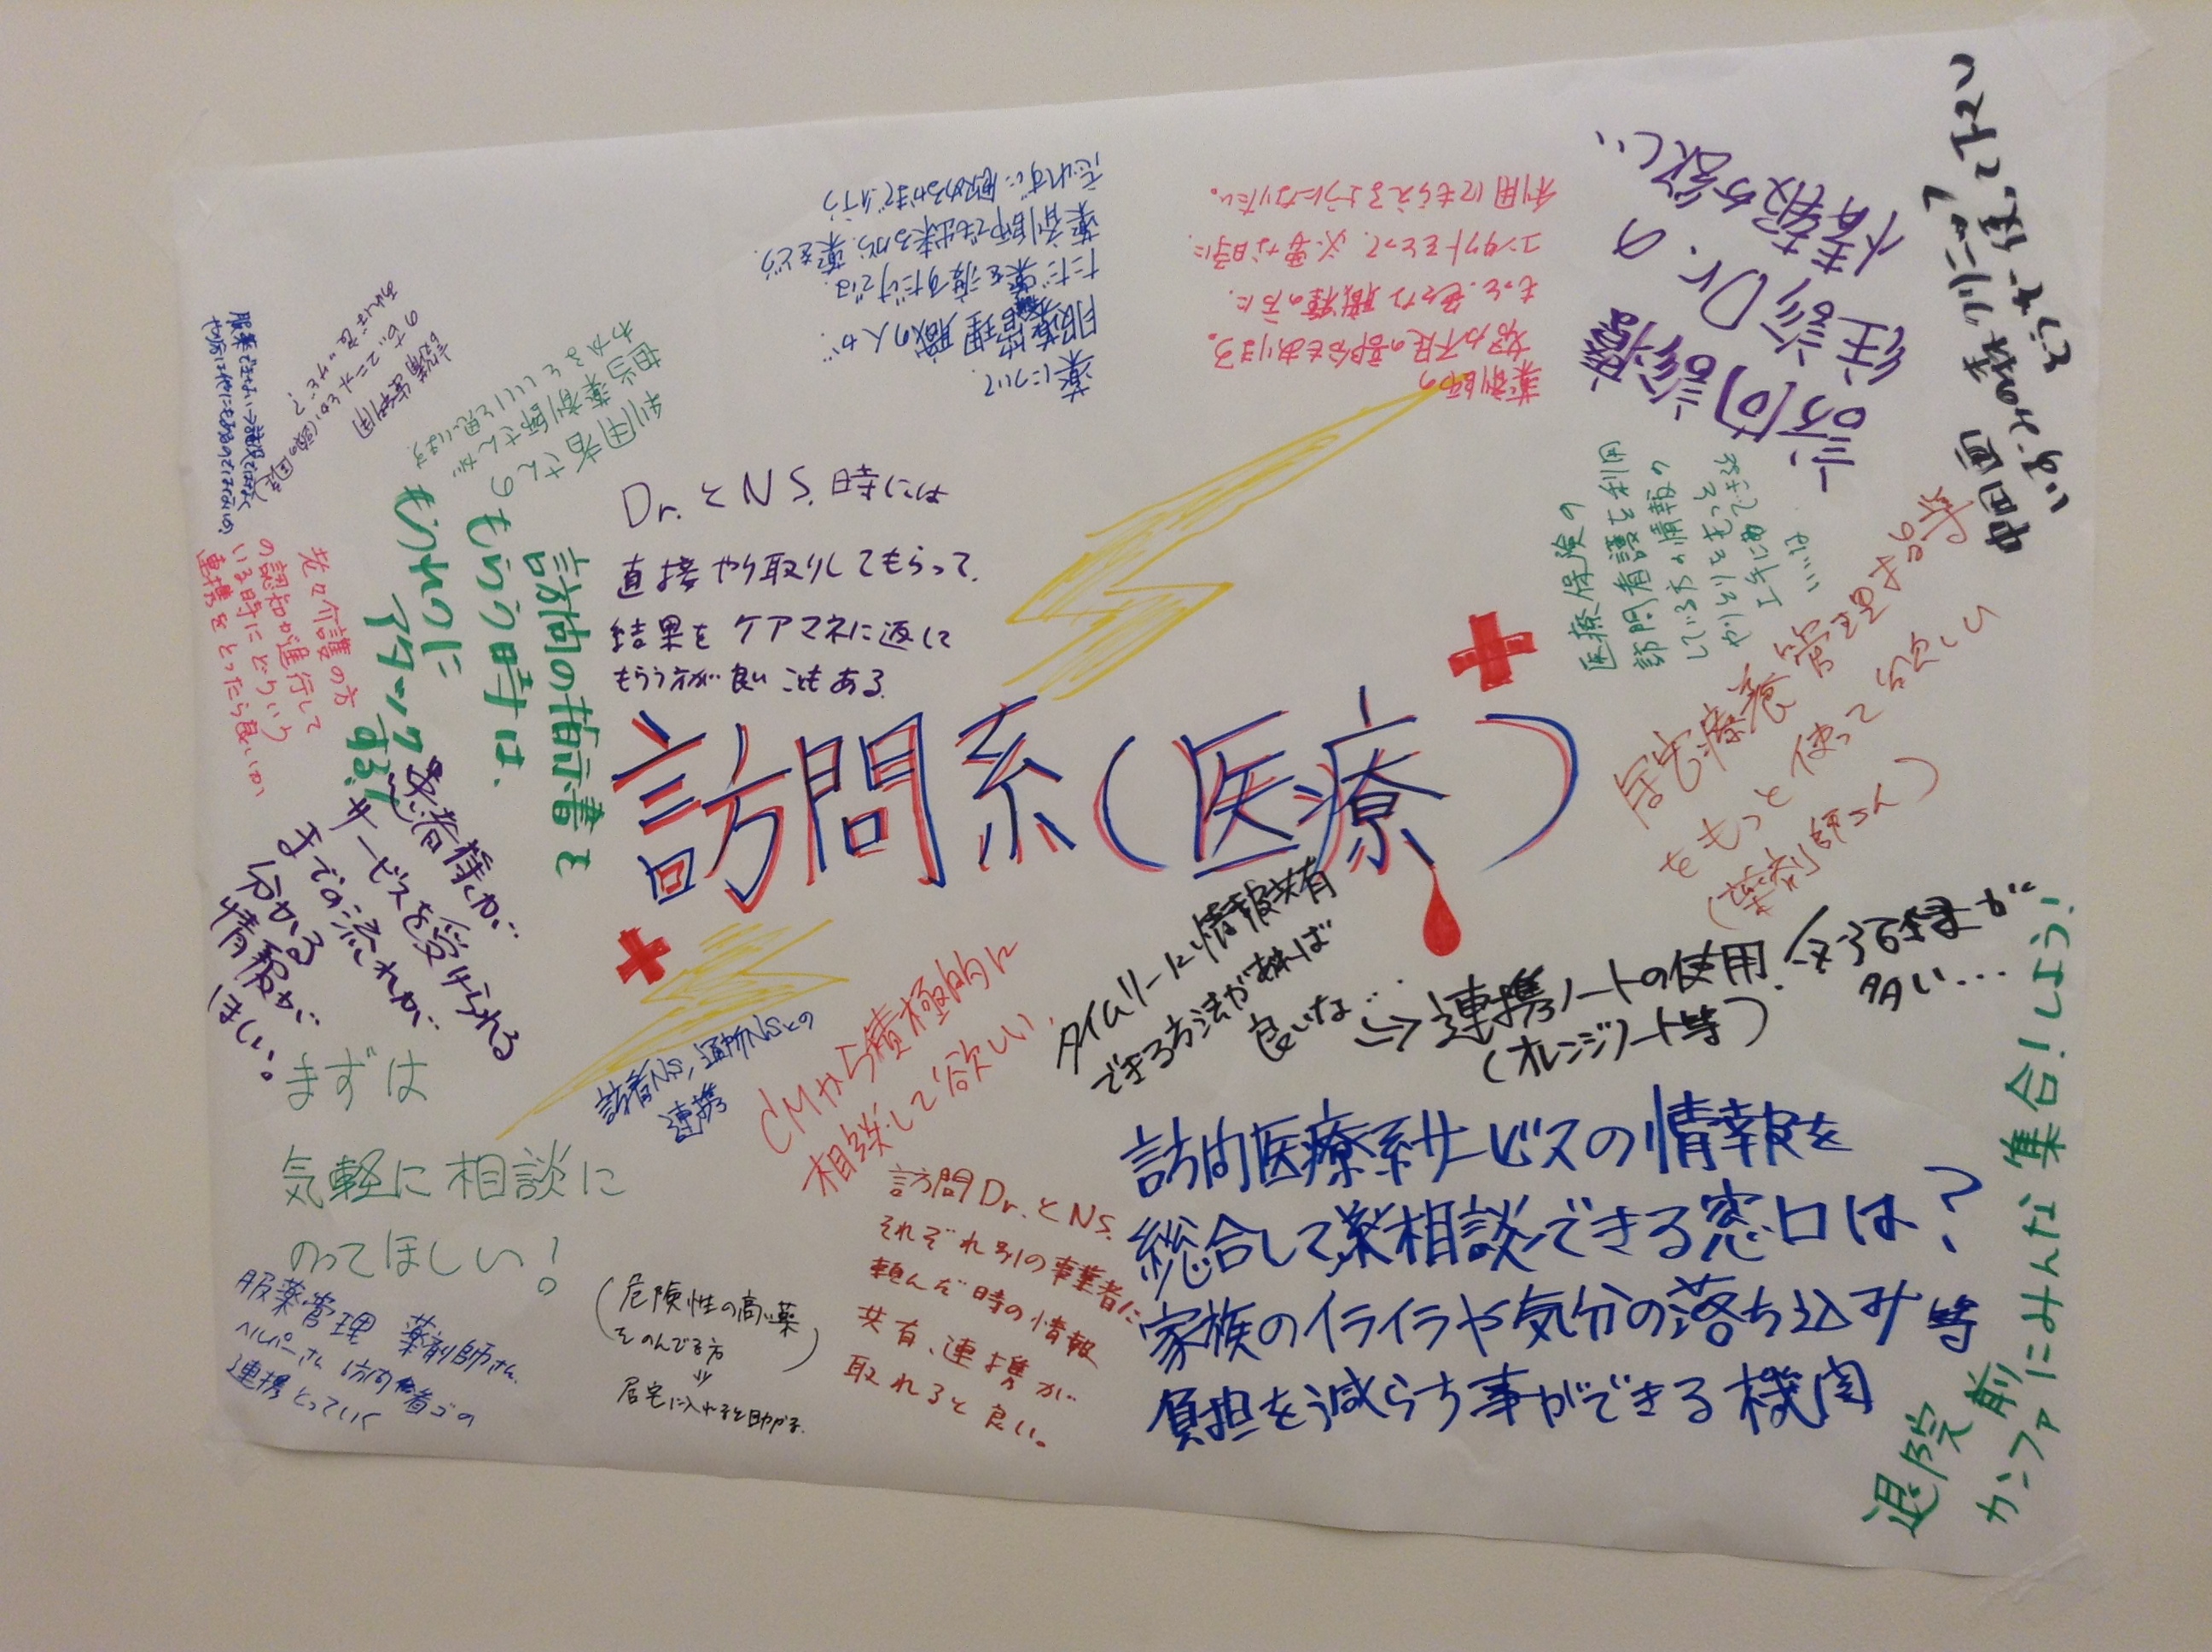 訪問系(医療)
Dr.とNS.時には
直接やり取りしてもらって、
結果をケアマネに返して
もらう方が良いこともある。
薬について、
服薬管理職の人が…
ただ薬を渡すだけでは、
薬剤師でも出来るが、薬をどう
薬剤師の
努力不足の部分もあります。
もっと、色々な職種の方に
コンタクトをとって、必要な時に
利用してもらえるようになりたい。
訪問診療
往診Dr.の
情報が欲しい
どうぞ使って下さい
医療保険の
訪問看護を利用
している方の情報の
やりとりをもっと
上手にできれば
いいな
居宅療養管理指導
をもっと使って欲しい
(薬剤師さん)
利用者さんの
担当薬剤師さんが
わかるといいと思います。
訪問の指示書を
もらう時は、
アタック
する!
先々介護の方
の認知が進行して
いる時にどういう
連携をとったら良いか
患者様が
サービスを受けられる
までの流れが
分かる
情報が
ほしい。
まずは
気軽に相談に
のってほしい!
訪看NS,通所NSとの
連携
CMから積極的に
相談して欲しい。
タイムリーに情報共有
できる方法があれば
良いな…
→連携ノートの使用。
(オレンジノート等)
多い…
訪問医療系サービスの情報を
総合して相談できる窓口は?
家族のイライラや気分の落ち込み等
負担を減らす事ができる機関
訪問Dr.とNS.
それぞれ別の事業者に
頼んだ時の情報
共有、連携が
取れると良い。
(危険性の高い薬
をのんでる方)
⇓
居宅に入れると助かる。
服薬管理 薬剤師さん、
ヘルパーさん 訪問看ゴの
連携とっていく
退院前
カンファにみんな集合!しよう!